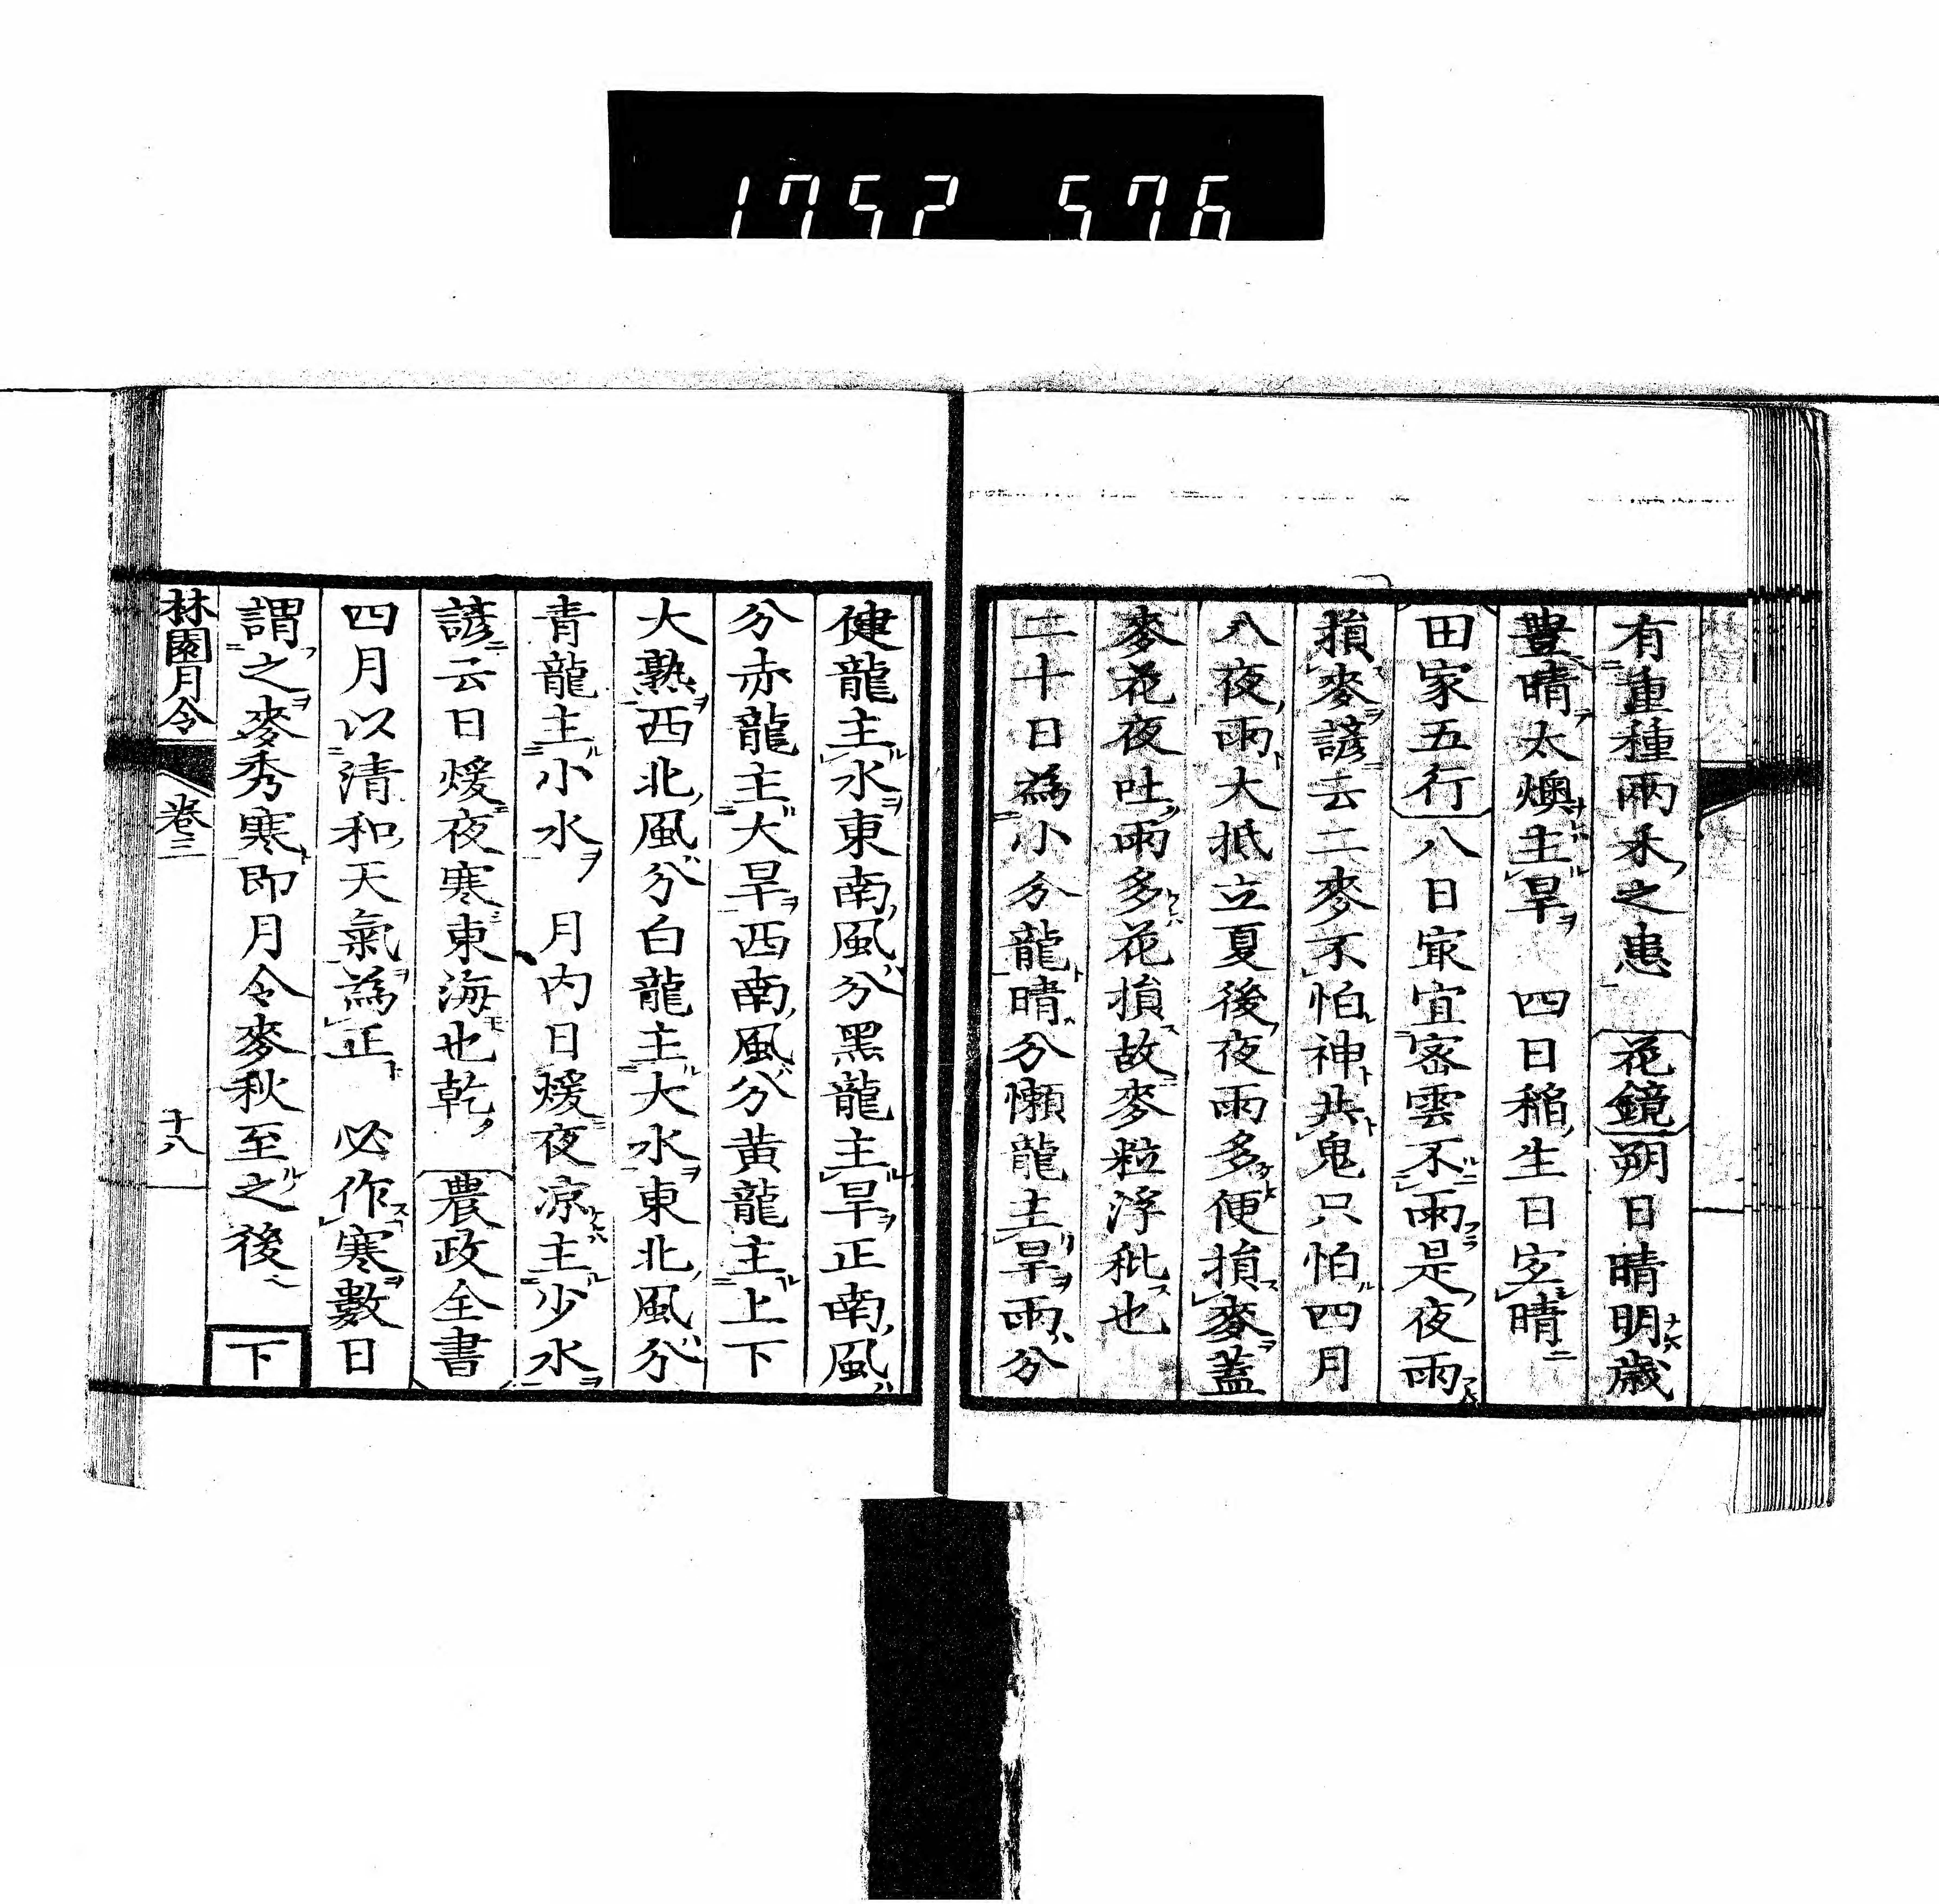 1752 576
有重種兩禾之患 花鏡 朔日晴明歲
豊晴太燠主旱 四日稻生日宐晴
田家五行 八日㝡宜密雲不雨是夜雨
損麥諺云二麥不怕神共鬼只怕四月
八夜雨大抵立夏後夜雨多便損麥蓋
麥花夜吐雨多花損故麥粒浮秕也
二十日為小分龍晴分懶龍主旱雨分
健龍主水東南風分黑龍主旱正南風
分赤龍主大旱西南風分黃龍主上下
大熟西北風分白龍主大水東北風分
青龍主小水 月内日煖夜凉主少水
諺云日煖夜寒東海也乾 農政全書
四月以清和天氣為正 必作寒數日
謂之麥秀寒即月令麥秋至之後
下
林園月令
卷三
十八